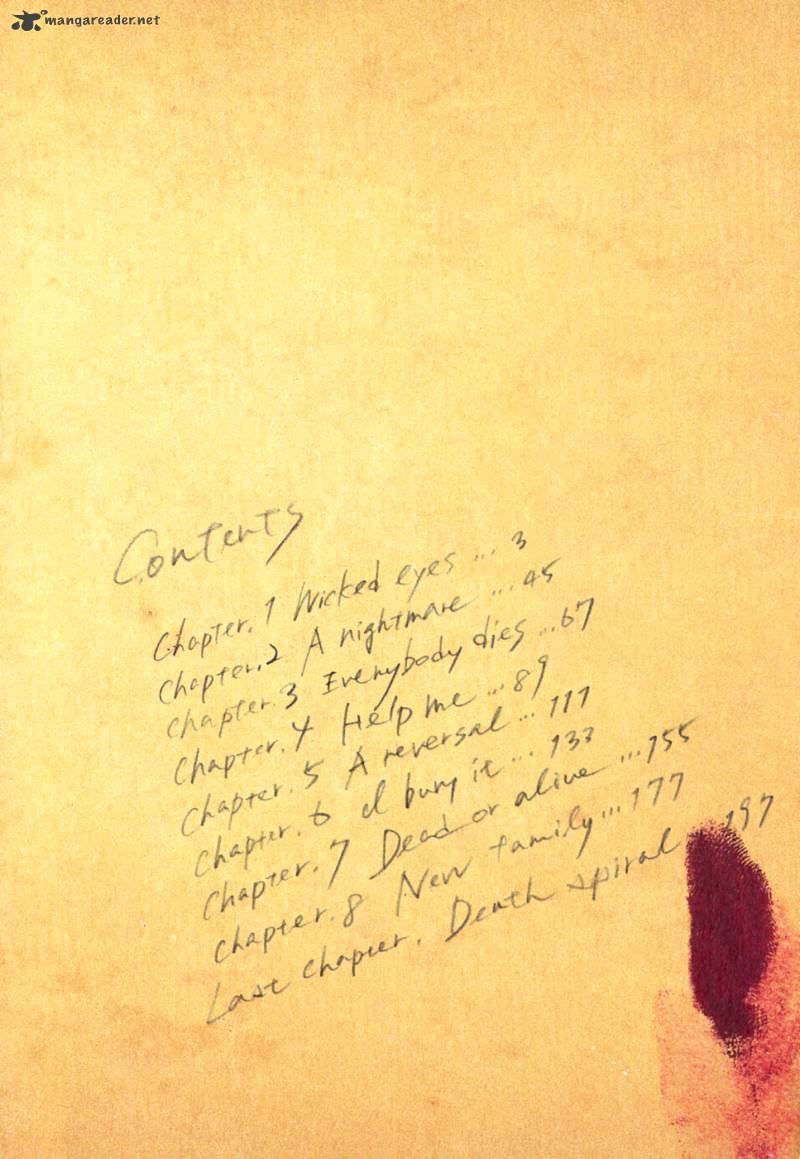 mangareader.net
Contents
Chapter. 1 Wicked eyes ... 3
Chapter. 2 A nightmare ... 45
Chapter. 3 Everybody dies ... 67
Chapter. 4 Help me ... 89
Chapter. 5 A reversal ... 111
Chapter. 6 I bury it ... 133
Chapter. 7 Dead or alive ... 155
Chapter. 8 New family ... 177
Last chapter. Death spiral ... 197